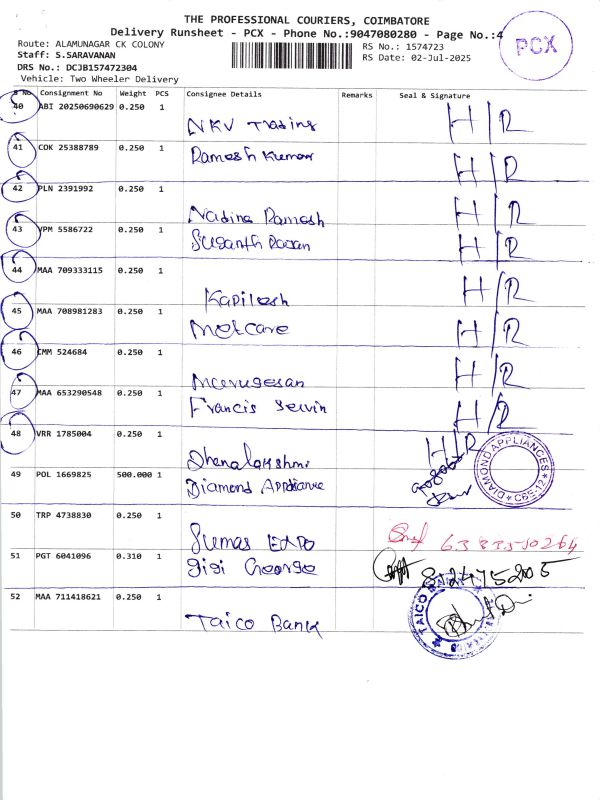 THE PROFESSIONAL COURIERS, COIMBATORE
Delivery Runsheet - PCX - Phone No.:9047080280 - Page No.:4
PCX
Route: ALAMUNAGAR CK COLONY
Staff: S.SARAVANAN
DRS No.: DCJB157472304
Vehicle: Two Wheeler Delivery
RS No.: 1574723
RS Date: 02-Jul-2025
S No Consignment No Weight PCS Consignee Details Remarks Seal & Signature
40 ABI 20250690629 0.250 1
NKV Trading H/R
41 COK 25388789 0.250 1
Ramesh Kumar H/R
42 PLN 2391992 0.250 1
Ramesh H/R
43 VPM 5586722 0.250 1
Suganth H/R
44 MAA 709333115 0.250 1
Kapilesh H/R
45 MAA 708981283 0.250 1
Metcare H/R
46 CMM 524684 0.250 1
Murugesan H/R
47 MAA 653290548 0.250 1
Francis H/R
48 VRR 1785004 0.250 1
Dhanalakshmi H/R
49 POL 1669825 500.000 1
Diamond Appliance
DIAMOND APPLIANCES
50 TRP 4738830 0.250 1
Sumas
51 PGT 6041096 0.310 1
Gigi George
52 MAA 711418621 0.250 1
Taico Bank
TAICO BANK